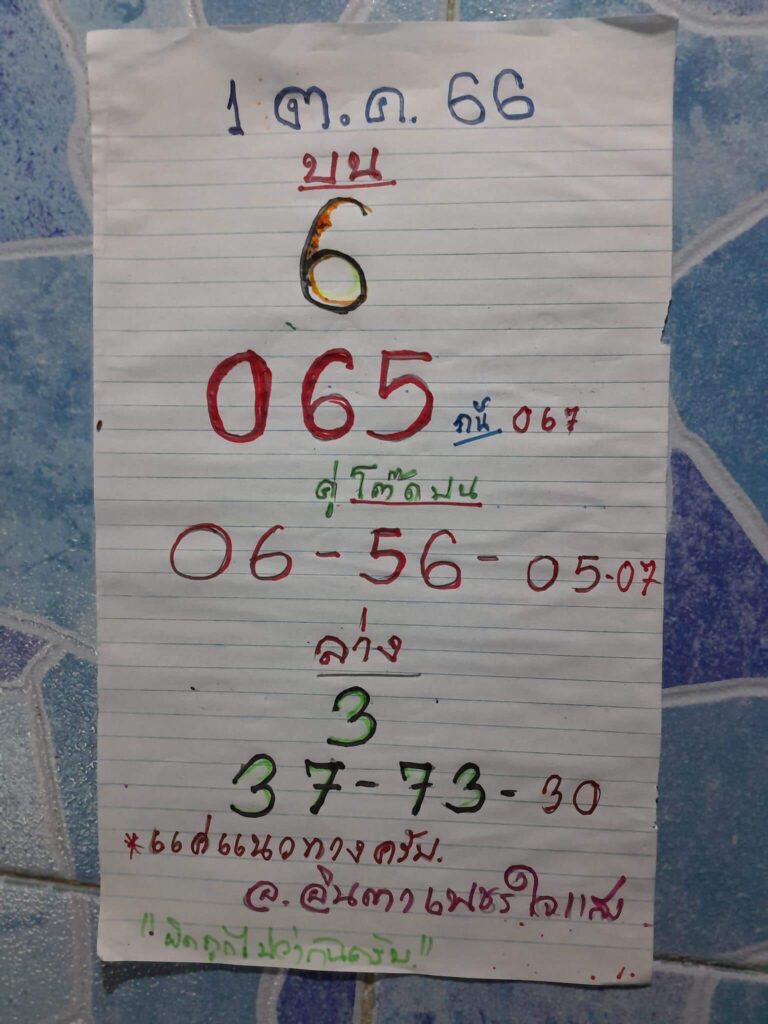 1 ต.ค. 66
บน
6
065 กน้ 067
คู่โต๊ดบน
06-56-05-07
ล่าง
3
37-73-30
*แค่แนวทางครับ.
อ.อินตา เพชรใจแสง
"ผิดถูกไม่ว่ากันครับ"